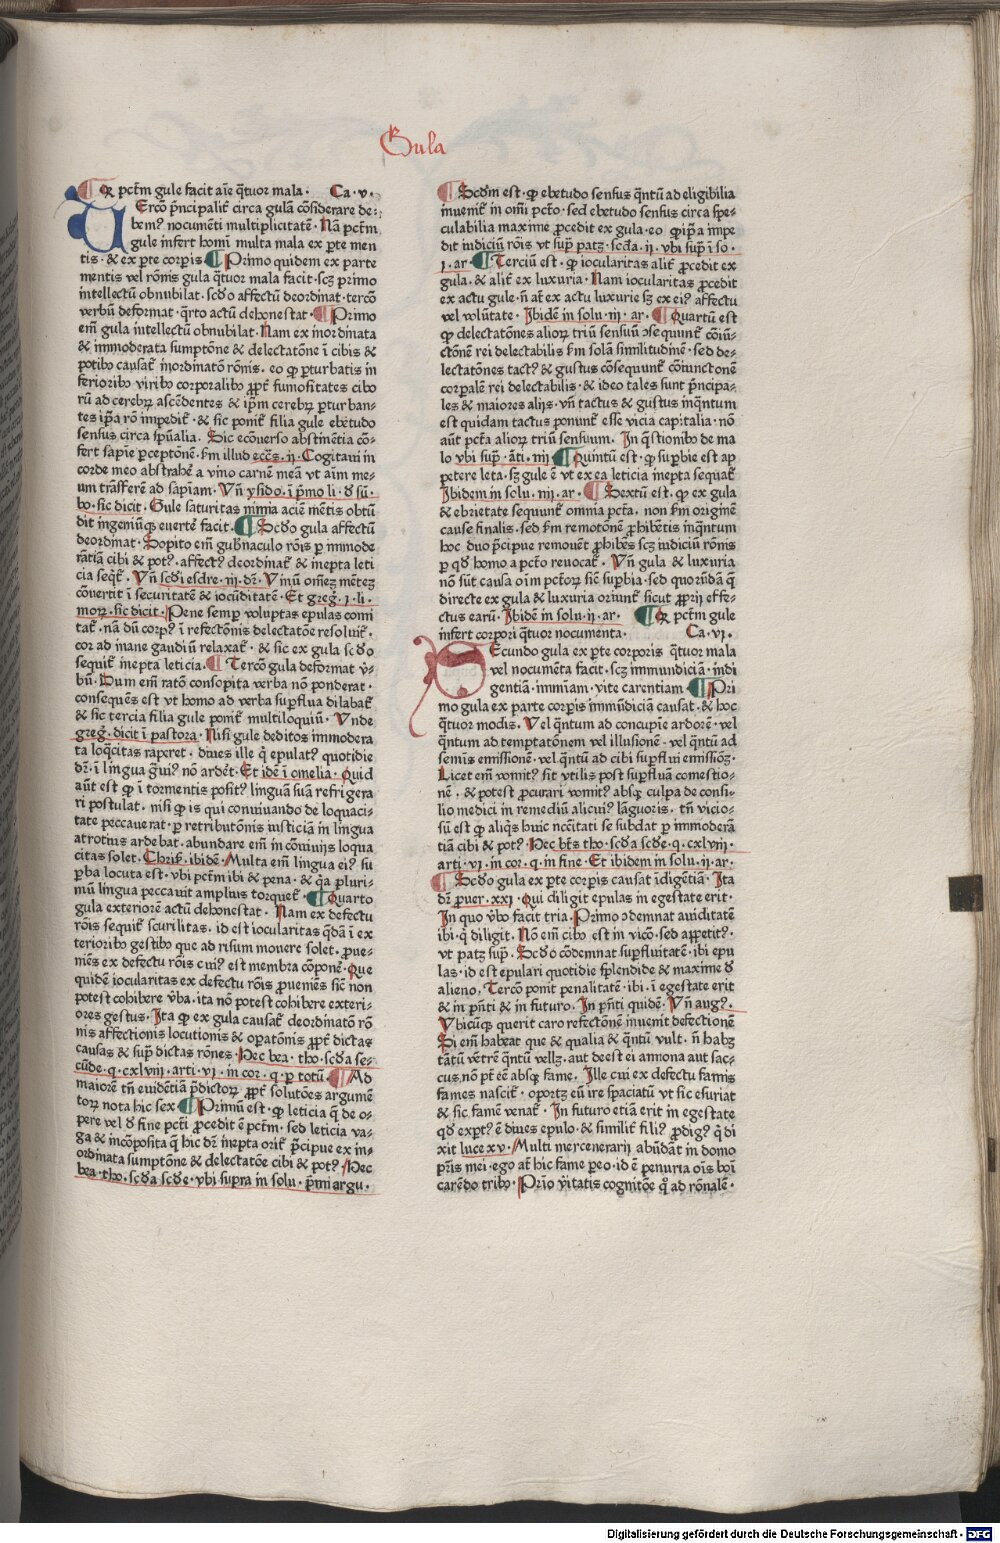 Gula
¶ Qꝙ pctm̄ gule facit aīe q̄tuor mala · Ca · v ·
Ercō pⁿcipalit̄ circa gulā cōsiderare de⸗
bem⁹ nocumēti multiplicitatē · Nā pctm̄
gule infert homī multa mala ex ꝑte men
tis · & ex ꝑte corpis · ¶ Primo quidem ex parte
mentis vel rōnis gula q̄tuor mala facit · scꝫ primo
intellectū obnubilat · scd̄o affectū deordinat · tercō
verbū deformat · q̄rto actū dehonestat · ¶ Primo
em̄ gula intellectū obnubilat · Nam ex inordinata
& immoderata sumptōne & delectatōne ī cibis &
potibꝰ causat̄ inordinatō rōnis · eo ꝙ ꝑturbatis in
ferioribꝰ viribꝰ corporalibꝰ ꝓpt̄ fumositates cibo
rū ad cerebꝝ ascēdentes & ip̄m cerebꝝ ꝑturban⸗
tes ip̄a rō impedit̄ · & sic ponit̄ filia gule ebetudo
sensus circa sp̄ualia · Sic ecōuerso abstinētia cō⸗
fert sapīe ꝑceptōnē · s̄m illud eccs̄ · ij · Cogitaui in
corde meo abstrahē a vino carnē meā vt aīm me⸗
um trāsferrē ad sapīam · Vn̄ ysido · ī pⁱmo li · d̄ sū ·
bo · sic dicit · Gule saturitas nimia aciē mētis obtū
dit ingeniūqꝫ euertē facit · ¶ Scd̄o gula affectū
deordinat · Sopito em̄ gub̄naculo rōis ꝑ immode
rātiā cibi & pot⁹ · affect⁹ deordinat̄ & inepta leti
cia seq̄t̄ · Vn̄ scd̄i esdre · iij · dr̄ · Vinū om̄eꝫ mēteꝫ
cōuertit ī securitatē & iocūditatē · Et greḡ · ꝭ · li ·
moꝝ · sic dicit · Pene semꝑ voluptas epulas comi
tat̄ · nā dū corp⁹ ī refectōnis delectatōe resoluit̄ ·
cor ad inane gaudiū relaxat̄ · & sic ex gula scd̄o
sequit̄ inepta leticia · ¶ Tercō gula deformat v̄⸗
bū · Dum em̄ ratō consopita verba nō ponderat ·
consequēs est vt homo ad verba suꝑflua dilabat̄
& sic tercia filia gule ponit̄ multiloquiū · Vnde
greḡ · dicit ī pastora · Nisi gule deditos immodera
ta loq̄citas raperet · diues ille q̄ epulat⁹ quotidie
dr̄ · ī lingua g̃ui⁹ nō ardet̄ · Et idē ī omelia · Quid
aūt est ꝙ ī tormentis posit⁹ linguā suā refrigera
ri postulat · nisi ꝙ is qui conuiuando de loquaci⸗
tate peccauerat · ꝑ retributōnis iusticiā in lingua
atrotius ardebat · abundare em̄ in cōuiuijs loqua
citas solet · Chrisͭ · ibidē · Multa em̄ lingua ei⁹ su
ꝑba locuta est · vbi pctm̄ ibi & pena · & q̄a pluri⸗
mū lingua peccauit amplius torquet̄ · ¶ Quarto
gula exteriorē actū dehonestat · Nam ex defectu
rōis sequit̄ scurilitas · id est iocularitas q̄dā ī ex
terioribꝰ gestibꝰ que ad risum mouere solet · ꝓue⸗
niēs ex defectu rōis cui⁹ est membra cōponē · Que
quidē iocularitas ex defectu rōis ꝓueniēs sic̄ non
potest cohibere v̄ba · ita nō potest cohibere exteri⸗
ores gestus · Ita ꝙ ex gula causat̄ deordinatō rō
nis affectionis locutionis & oꝑatōnis ꝓpt̄ dictas
causas & suꝑ dictas rōnes · Hec bea · tho · scd̄a se⸗
cūde · q · cxlviij · arti · vi · in cor · q · ꝑ totū · ¶ Ad
maiorē tn̄ euidētiā pⁿdictoꝝ · ꝓpt̄ solutōes argumē
toꝝ nota hic sex · ¶ Primū est · ꝙ leticia q̄ de o⸗
pere vel d̄ fine pct̄i ꝓcedit ē pctm̄ · sed leticia va⸗
ga & incōposita q̄ hic dr̄ inepta orit̄ pⁿcipue ex in⸗
ordinata sumptōne & delectatōe cibi & pot⁹ · Hec
bea · tho · scd̄a scd̄e · vbi supra in solu · pⁱmi argu ·
¶ Scd̄m est · ꝙ ebetudo sensus q̄ntū ad eligibilia
inuenit̄ in om̄i pct̄o · sed ebetudo sensus circa spe⸗
culabilia maxime ꝓcedit ex gula · eo ꝙ ip̄a impe
dit iudiciū rōis vt suꝑ patꝫ · scd̄a · ij · vbi suꝑ ī so ·
ꝭ · ar · ¶ Terciū est · ꝙ iocularitas alit̄ ꝓcedit ex
gula · & alit̄ ex luxuria · Nam iocularitas ꝓcedit
ex actu gule · n̄ at̄ ex actu luxurie sꝫ ex ei⁹ affectu
vel volūtate · Ibidē in solu · iij · ar · ¶ Quartū est
ꝙ delectatōnes alioꝝ triū sensuū ↄsequunt̄ cōiū⸗
ctōnē rei delectabilis s̄m solā similitudinē · sed de⸗
lectatōnes tact⁹ & gustus cōsequunt̄ cōiunctonē
corpalē rei delectabilis · & ideo tales sunt pⁿncipa⸗
les & maiores alijs · vn̄ tactus & gustus inq̄ntum
est quidam tactus ponunt̄ esse vicia capitalia · nō
aūt pct̄a alioꝝ triū sensuum · In q̄stionibꝰ de ma
lo vbi suꝑ · ān̄ti · iiij · ¶ Quintū est · ꝙ suꝑbie est ap
petere leta · sꝫ gule ē vt ex ea leticia inepta sequat̄
Ibidem in solu · iiij · ar · ¶ Sextū est · ꝙ ex gula
& ebrietate sequunt̄ omnia pct̄a · non s̄m originē
cause finalis · sed s̄m remotōnē ꝓhibētis inq̄ntum
hec duo pⁿcipue remouēt ꝓhibēs scꝫ iudiciū rōnis
ꝑ qd̄ homo a pct̄o reuocat̄ · Vn̄ gula & luxuria
nō sūt causa oīm pct̄oꝝ sic̄ suꝑbia · sed quorūdā q̄
directe ex gula & luxuria oriunt̄ sicut ꝓprij effe⸗
ctus earū · Ibidē in solu · ij · ar · ¶ Qꝙ pctm̄ gule
infert corpori q̄tuor nocumenta · Ca · vi ·
Ecundo gula ex ꝑte corporis q̄tuor mala
vel nocumēta facit · scꝫ immundiciā · indi
gentiā · immīam · vite carentiam · ¶ Pri
mo gula ex parte corpis immūdiciā causat · & hoc
q̄tuor modis · Vel q̄ntum ad concupīe ardorē · vel
q̄ntum ad temptatōnem vel illusionē · vel q̄ntū ad
semīs emissionē · vel q̄ntū ad cibi suꝑflui emissionꝫ ·
Licet em̄ vomit⁹ sit vtilis post suꝑfluā comestio⸗
nē · & potest ꝓcurari vomit⁹ absqꝫ culpa de consi⸗
lio medici in remediū alicui⁹ lāguoris · tn̄ vicio⸗
sū est ꝙ aliq̄s huic nc̄citati se subdat ꝑ immoderā
tiā cibi & pot⁹ · Hec bt̄s tho · scd̄a scd̄e · q · cxlviij ·
arti · vi · in cor · q · in fine · Et ibidem in solu · ij · ar ·
¶ Scd̄o gula ex ꝑte corpis causat īdigētiā · Ita
dr̄ ꝓuer · xxi · Qui diligit epulas in egestate erit ·
In quo v̄bo facit tria · Primo ↄdemnat auiditatē
ibi · q̄ diligit · Nō em̄ cibꝰ est in vicō · sed appetit⁹ ·
vt patꝫ suꝑ · Scd̄o cōdemnat suꝑfluitatē · ibi epu
las · id est epulari quotidie splendide & maxime d̄
alieno · Tercō ponit penalitatē · ibi · ī egestate erit
& in pn̄ti & in futuro · In pn̄ti quidē · Vn̄ aug⁹ ·
Vbicūqꝫ querit caro refectōnē inuenit defectionē
Si em̄ habeat que & qualia & q̄ntū vult · n̄ habꝫ
tātū vētrē q̄ntū vellꝫ · aut deest ei annona aut sac⸗
cus nō pt̄ eē absqꝫ fame · Ille cui ex defectu famis
fames nascit̄ · oportꝫ eū ire spaciatū vt sic esuriat
& sic famē venat̄ · In futuro etiā erit in egestate
qd̄ expt⁹ ē diues epulo · & similit̄ fili⁹ ꝓdig⁹ q̄ di
xit luce xv · Multi mercenarij abūdāt in domo
pr̄is mei · ego at̄ hic fame ꝑeo · id ē penuria oīs boī
carēdo tribꝰ · Prīo v̄itatis cognitōe qͥ ad rōnalē ·
Digitalisierung gefördert durch die Deutsche Forschungsgemeinschaft · DFG